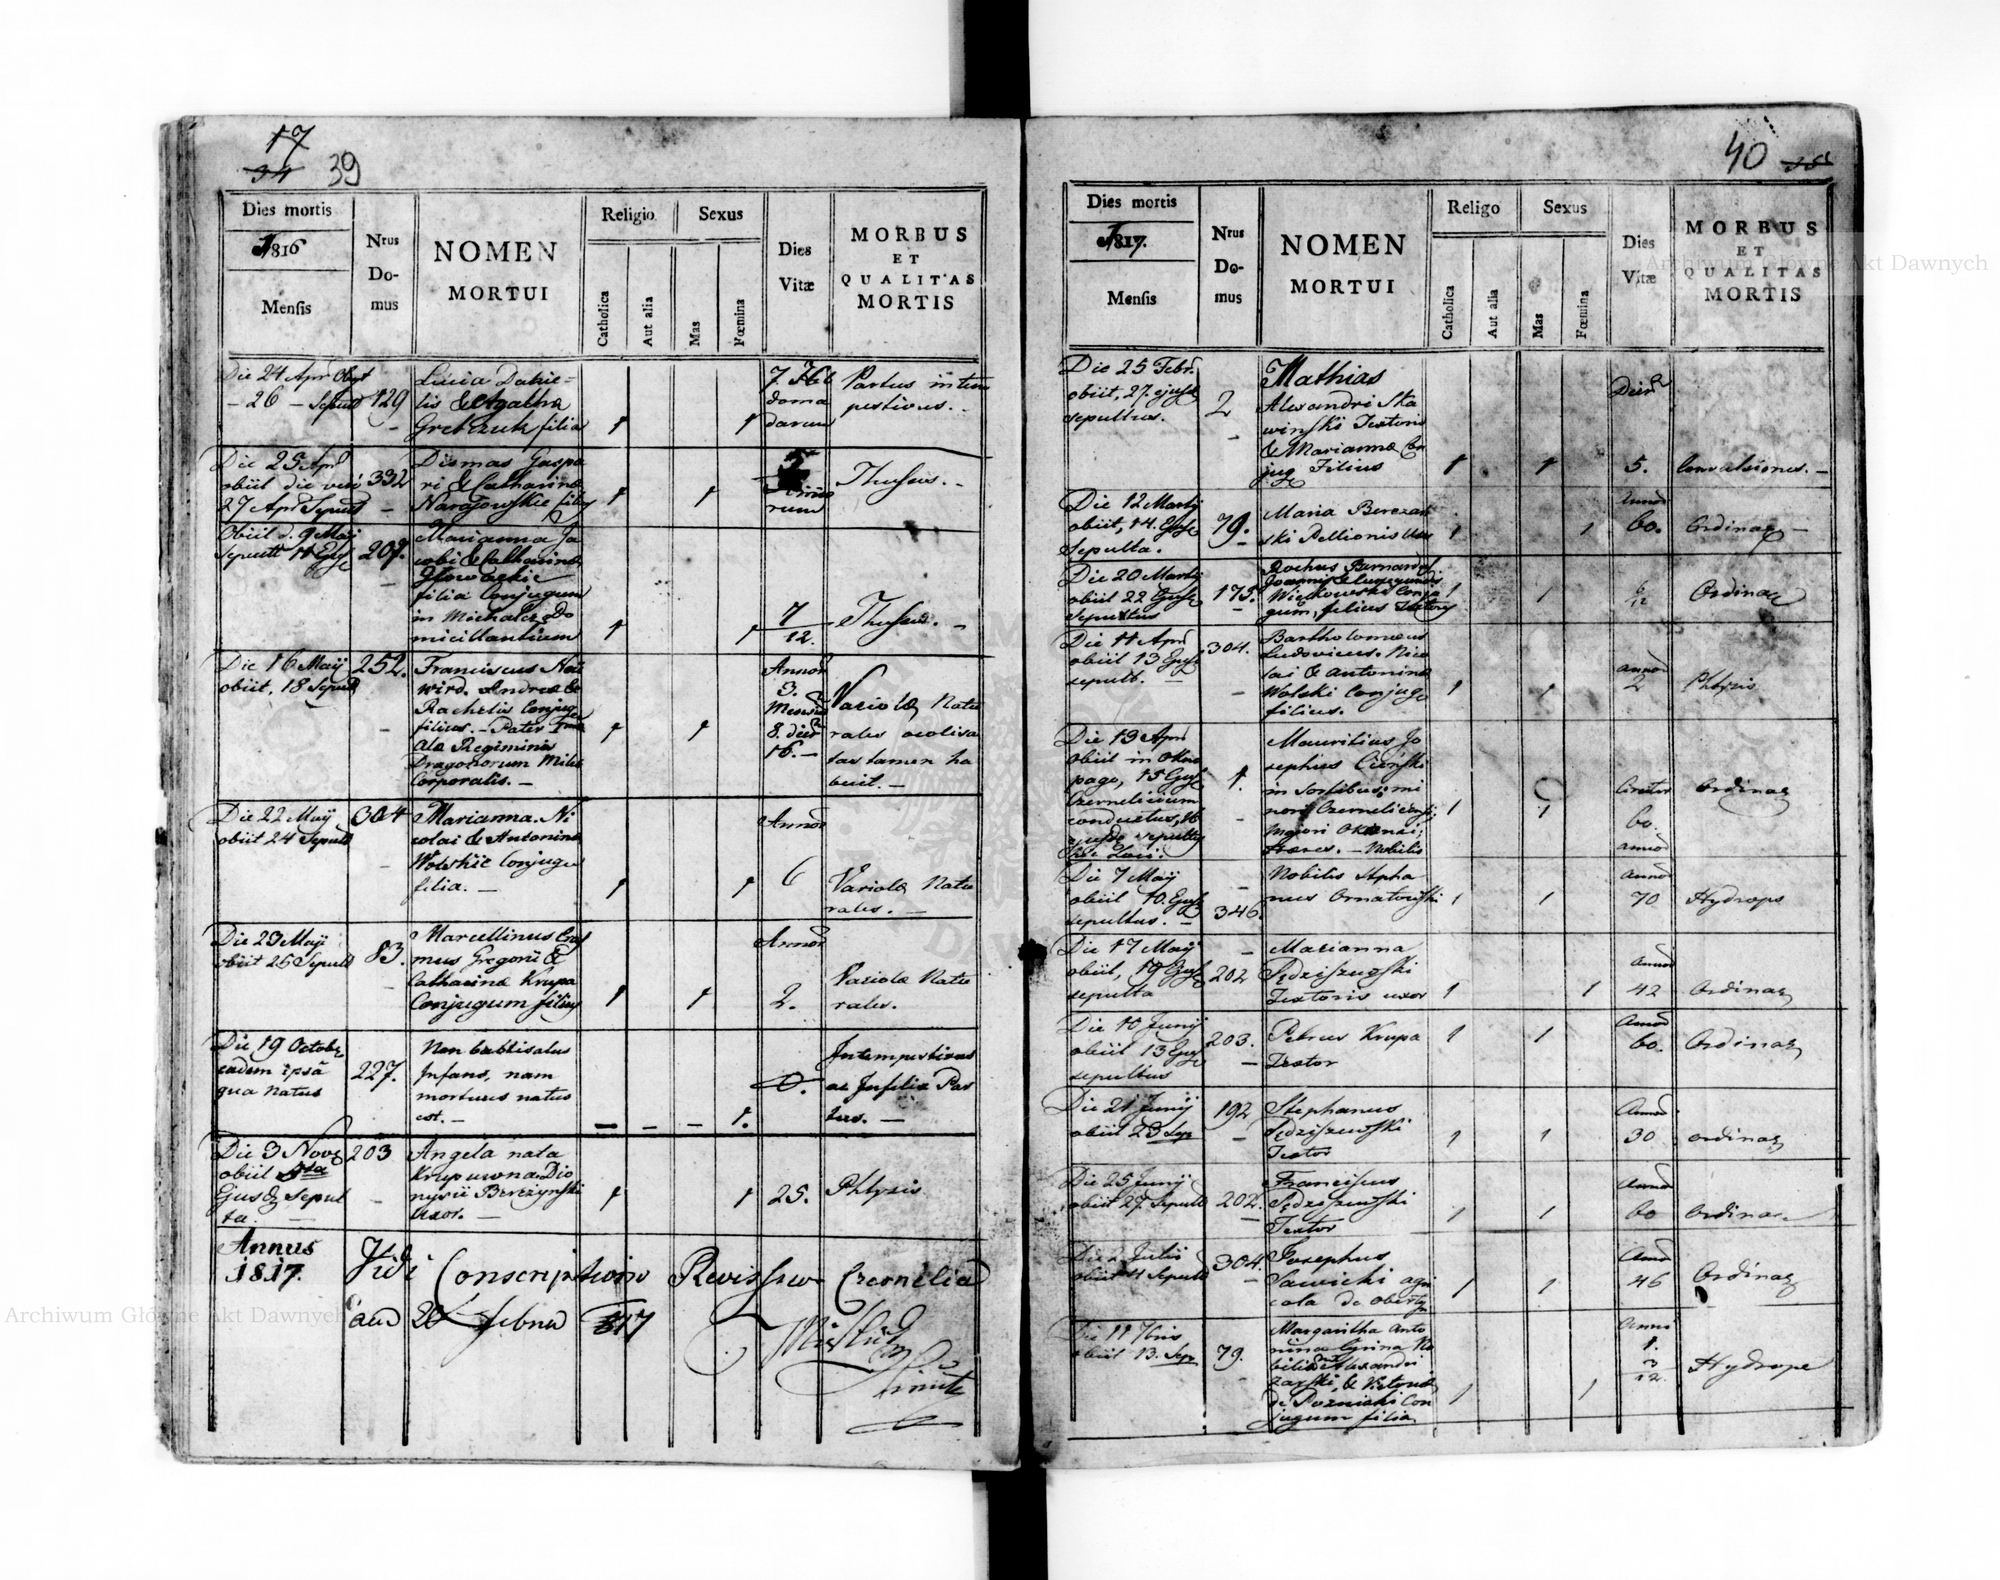 17
34 39
Dies mortis
1816
Mensis
Nrus
Do-
mus
NOMEN
MORTUI
Religio
Catholica
Aut alia
Sexus
Mas
Fœmina
Dies
Vitæ
MORBUS
ET
QUALITAS
MORTIS
Die 24 Apr Obyt
- 26 - Sepult
129
Lucia Danie=
lis & Agatha
filia
1
1
7. Heb
doma
darum
Partus intem
pestivus. -
Die 25 Apr
obiit die vero
27 Apr Sepult
332
Dismas Gaspa
ri & Catharinæ
Narajowskie filius
1
1
5
rum
Thussis. -
Obiit d. 9 Maji
Sepult 11 Ejusd
207.
Marianna Ja
cobi & Catharinæ
Głowackie
filia Conjugum
in Michalcze Do
micillantium
1
1
7
12.
Thussis. -
Die 16 Maij
obiit, 18 Sepult
252.
Franciscus
Andreæ &
Rachelis Conjug
filius. - Pater
Regiminis
Dragonorum Miles
Corporalis. -
1
1
Annor
3.
Mensiu
8. dier
16. -
Variolæ Natu
rales
tas tamen ha
buit. -
Die 22 Maij
obiit 24 Sepult
304
Marianna Ni
colai & Antoninæ
Wolskie Conjugu
filia. -
1
1
Annor
6
Variolæ Natu
rales. -
Die 23 Maji
obiit 25 Sepult
83.
Marcellinus Eras
mus Gregorii &
Catharinæ Krupa
Conjugum filius
1
1
Annor
2.
Variolæ Natu
rales.
Die 19 Octobr
eadem ipsâ
qua natus
227.
Non babtisatus
Infans, nam
mortuus natus
est. -
1.
0.
Intempestivus
ac Infelix Par
tus. -
Die 3 Novbr
obiit 5ta
Ejusd Sepul
ta.
203
Angela nata
Krupuwna Dio
nysii Berezynski
Uxor. -
1
1
25.
Phtysis
Annus
1817.
Vidi Conscriptionis Revissor Czernelica
die 20 Febru 817
40 35
Dies mortis
1817.
Mensis
Nrus
Do-
mus
NOMEN
MORTUI
Religo
Catholica
Aut alia
Sexus
Mas
Fœmina
Dies
Vitæ
MORBUS
ET
QUALITAS
MORTIS
Die 25 Febr.
obiit, 27. ejusd
sepultus.
2
Mathias
Alexandri Ska
winski Textoris
& Mariannæ Co
jug Filius
1
1
Dier
5.
Convulsiones. -
Die 12 Martij
obiit, 14. Ejusd
Sepulta.
79.
Maria Berezań
ski Pellionis Uxor
1
1
Annor
60.
Ordinar -
Die 20 Martij
obiit 22 Ejusd
Sepultus
175.
Rochus Bernard
Joannis & Cunegundis
Więckowski Conju
gum, filius Textoris
1
1
6
12
Ordinar
Die 11 Apr
obiit 13 Ejusd
sepult. -
304.
Bartholomeus
Ludovicus. Nico
lai & Antoninæ
Wolski Conjug
filius.
1
1
annor
2
Phtysis
Die 13 Apr
obiit in Okno
pago, 15 Ejusd
Czernelicium
conductus,
1.
Mauritius Jo
sephus Cieński
in Sortibus; mi
nori Czernelicensi;
Majori Oknensi;
Hæres. - Nobilis
1
1
Circiter
60.
annor
Ordinar
Die 7 Maij
obiit 10. Ejusd
sepultus. -
346.
Nobilis Stepha
nus Ornatowski
1
1
Annor
70
Hydrops
Die 17 Maij
obiit, 19 Ejusd
sepulta
202
Marianna
Sędziszewski
Textoris uxor
1
1
Annor
42
Ordinar
Die 10 Junij
obiit 13 Ejusd
sepultus
203.
Petrus Krupa
Textor
1
1
Annor
60.
Ordinar
Die 21 Junij
obiit 23 Sep
192
Stephanus
Sędziszewski
Textor
1
1
Annor
30
ordinar
Die 25 Junij
obiit 27. Sepult
202.
Franciscus
Sędziszewski
Textor
1
1
Annor
60
Ordinar.
Die 2 Julii
obiit 4 Sepult
304.
Josephus
Sawicki agri
cola de Obertyn
1
1
Annor
46
Ordinar
Die 11 7bris
obiit 13. Sep
79.
Margaritha Anto
nina
Alexandri
& Victoriæ
de Pozniaki Con
jugum filia
1
1
Anni
1.
3
12
Hydrope
Archiwum Główne Akt Dawnych
Archiwum Główne Akt Dawnych